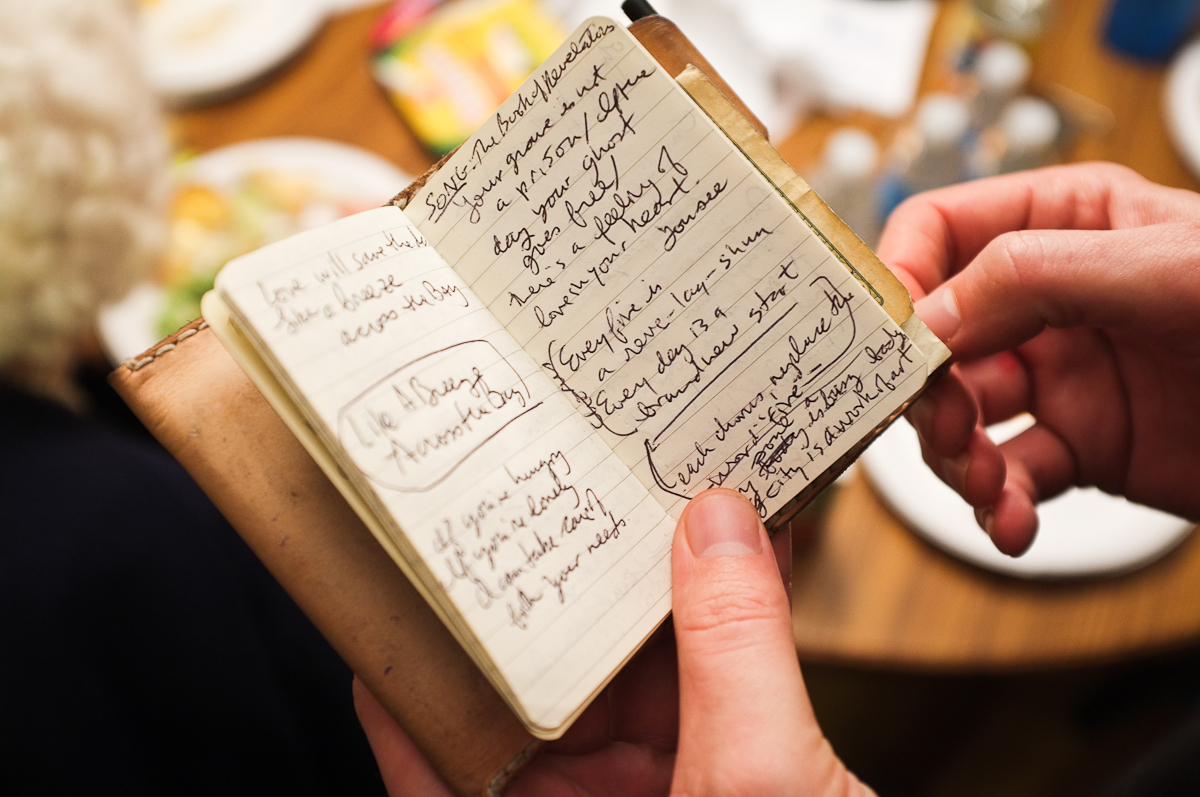 Love will save the
like a breeze
across the Bay
Like A Breeze
Across the Bay
If you're hungry
If you're lonely
I can take care of
both your needs
SONG: The Book of Revelators
your grave is not
a prison /
day your ghost
goes free /
there's a feeling of
love in your heart
you see
(Every fire is
a reve-lay-shun
Every day is a
brand new start
(each chorus, replace the
word "fire"
body
my body is busy
City is a work of art